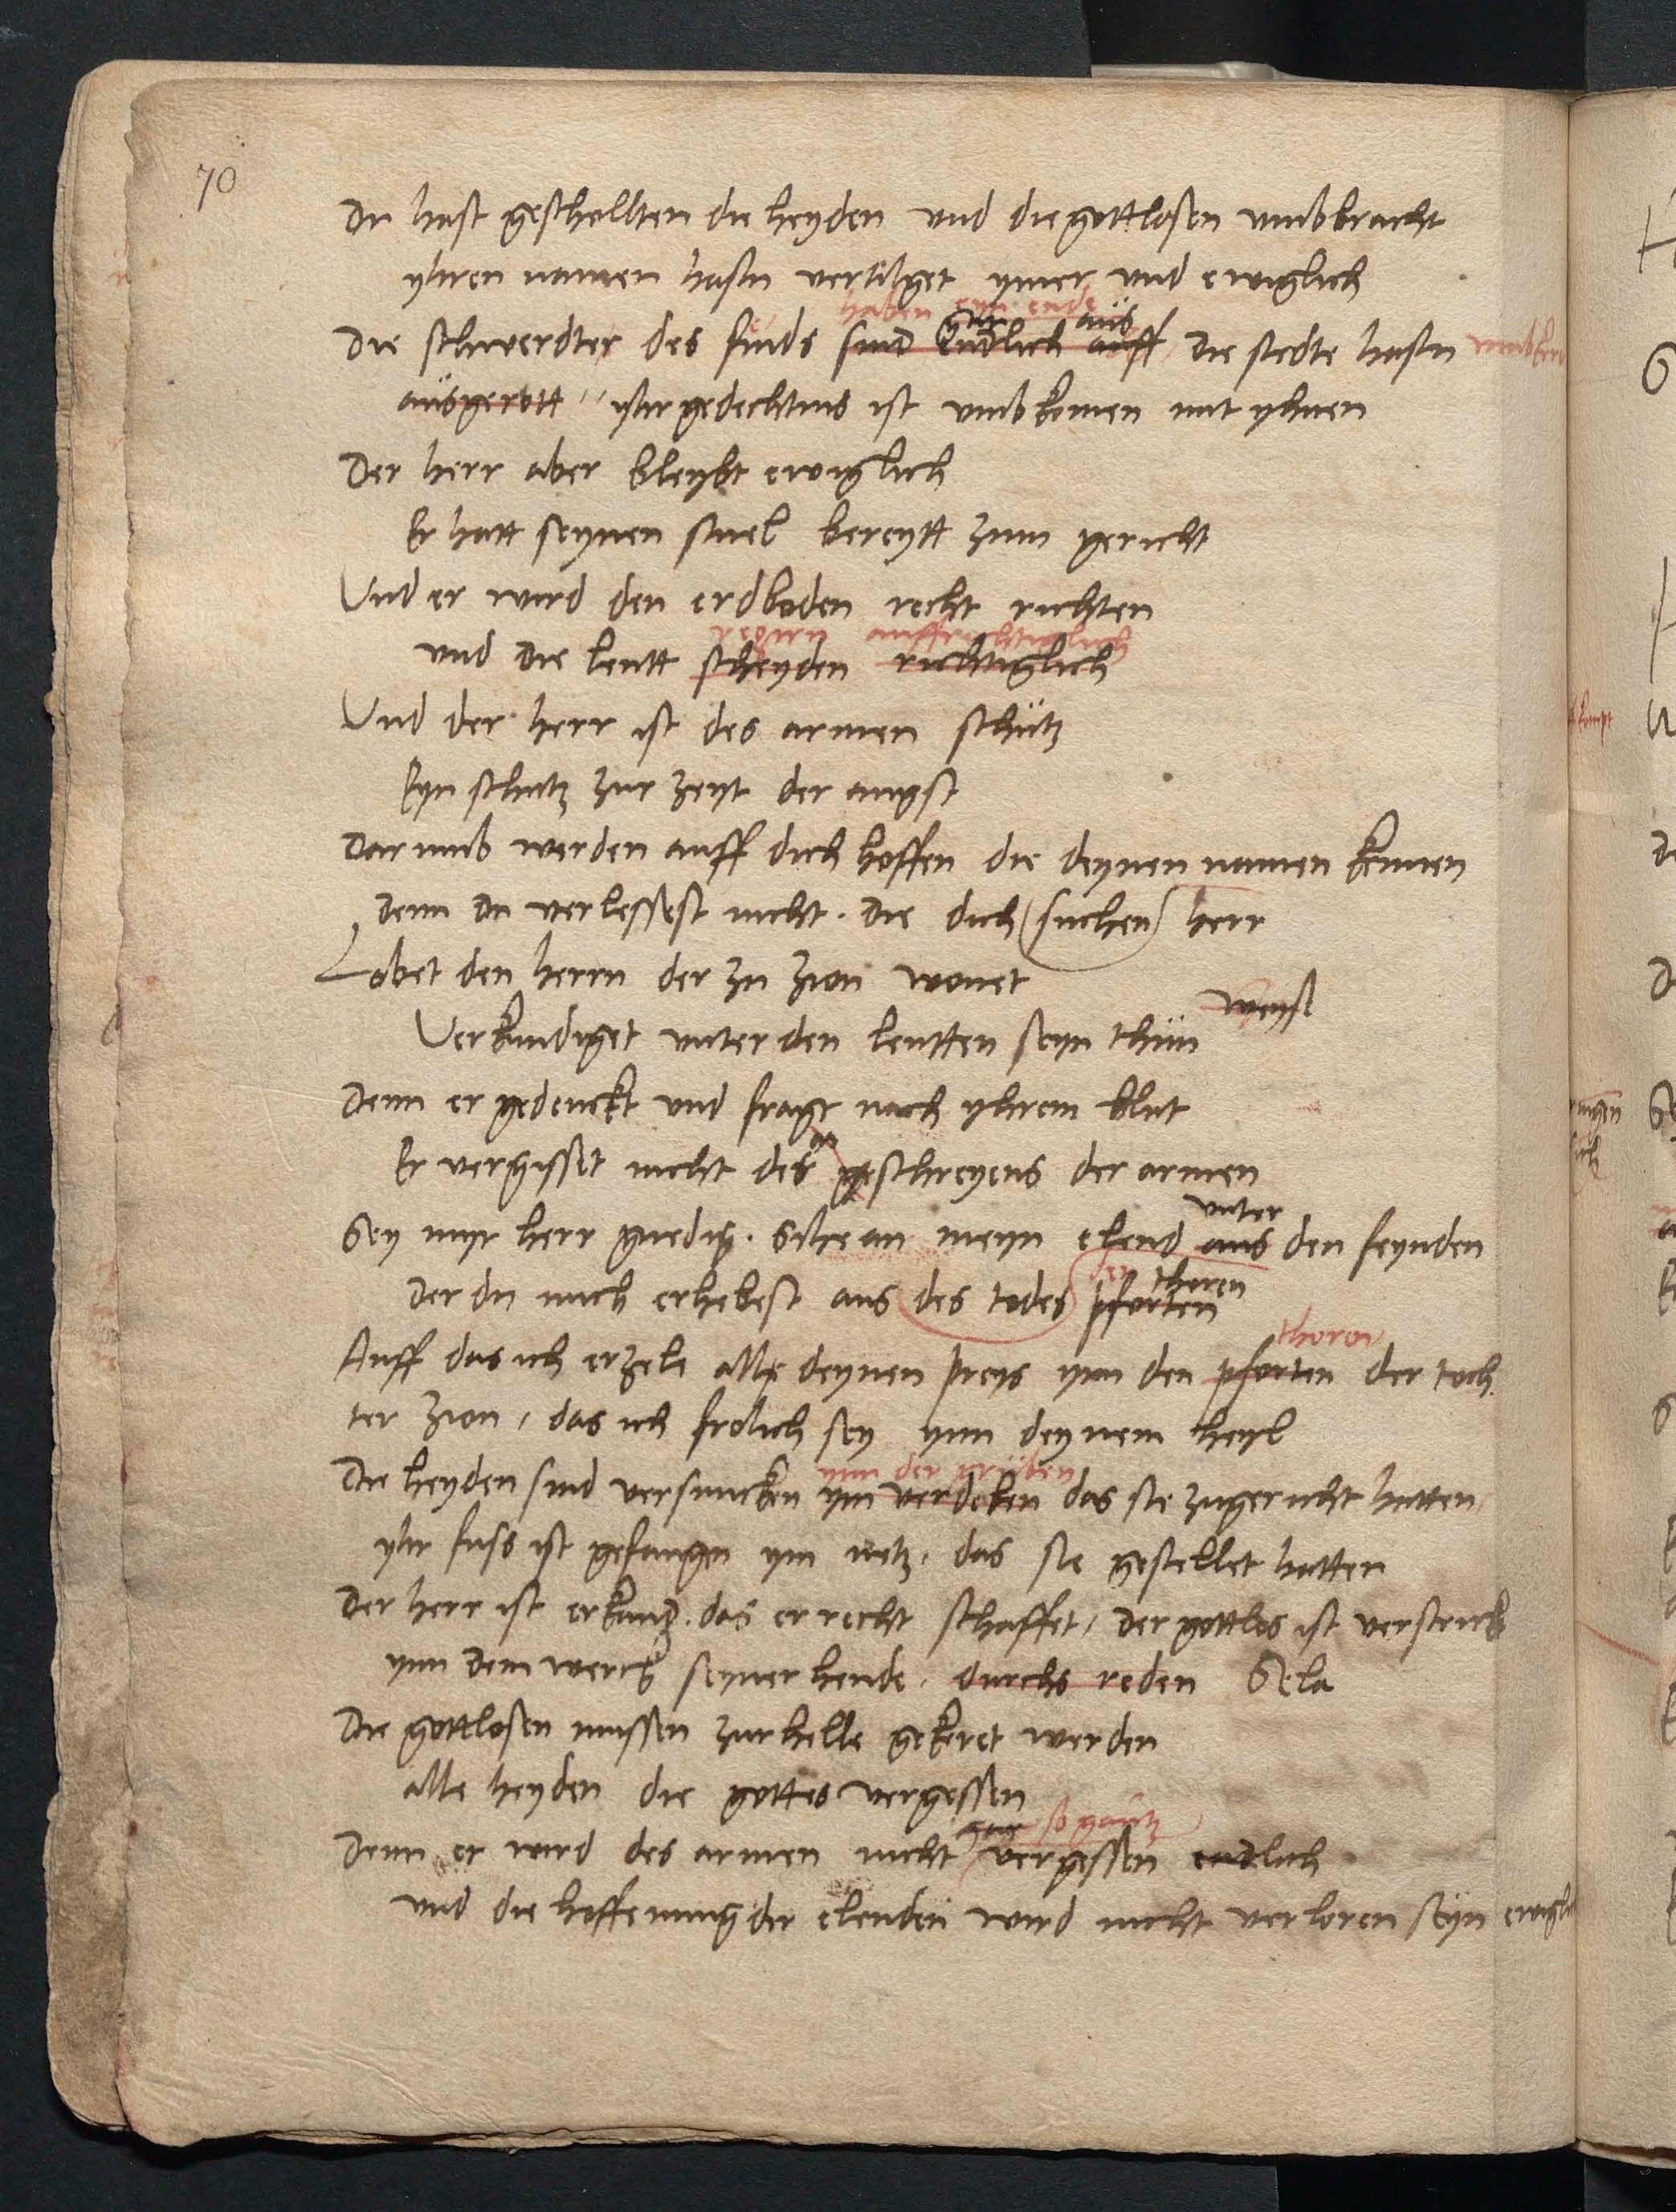 70
Du hast geschollten die heyden und die gottlosen umbbracht
yhren namen hastu vertilget ymer und ewiglich
haben eyn ende
gar aus
Die schwerdter des feinds sind Endlich auff, die stedte hastu umbkeret
ausgerott, yhr gedechtnis ist umbkomen mit yhnen
Der herr aber bleybt ewiglich
Er hatt seynen stuel bereytt zum gericht
Und er wird den erdboden recht richten
regirn auffrichtiglich
und die leutt scheyden richtiglich
Und der herr ist des armen schutz
Eyn schutz zur zeyt der angst
Darumb werden auff dich hoffen die deynen namen kennen
Denn du verlessest nicht. die dich suchen herr
Lobet den herrn der zu Zion wonet
Verkundiget unter den leutten seyn thun
Denn er gedenckt und fragt nach yhrem blut
Er vergisset nicht des geschreyens der armen
unter
Sey myr herr gnedig. Sihe an meyn elend aus den feynden
den thoren
Der du mich erhebest aus des todes pforten
thoren
Auff das ich erzele alle deynen preys ynn den pforten der toch
ter Zion, das ich frolich sey ynn deynem heyl
ynn der gruben
Die heyden sind versuncken ym verderben das sie zugericht hatten
yhr fuss ist gefangen ym netz, das sie gestellet hatten
Der herr ist erkand. das er recht schaffet, der gottlos ist verstrickt
ynn dem werck seyner hende. durchs reden Sela
Die gottlosen mussen zur helle gekeret werden
alle heyden die gottes vergessen
gar so gantz
Denn er wird des armen nicht vergessen endlich
und die hoffenung der elenden wird nicht verloren seyn ewiglich